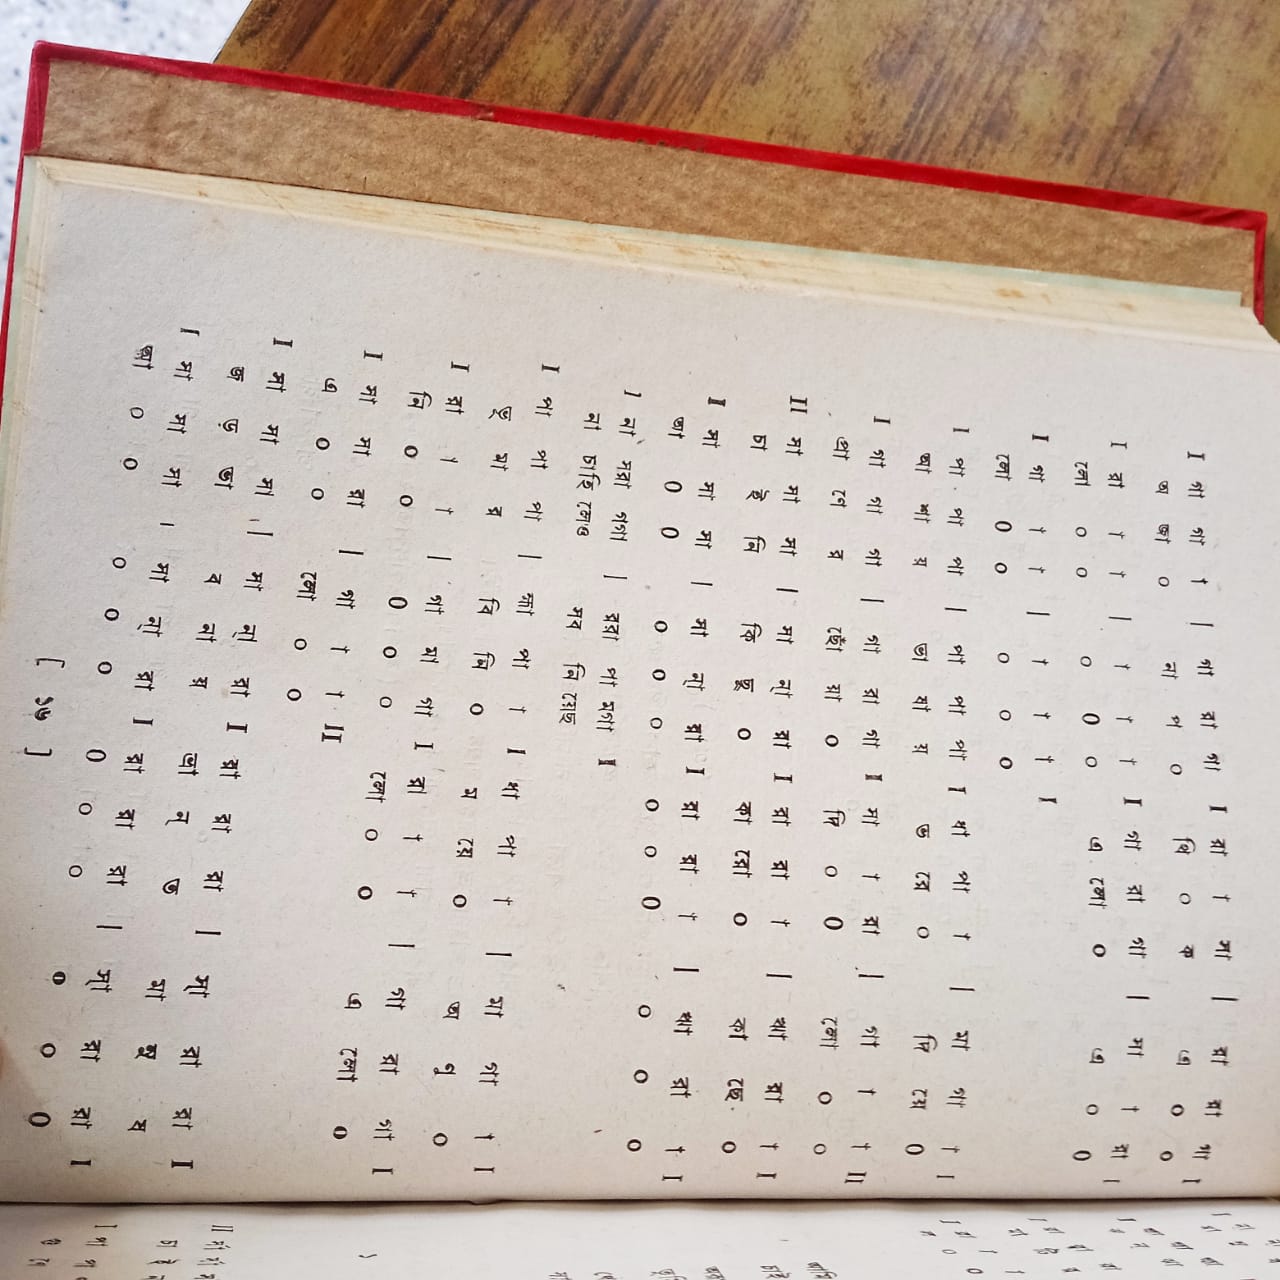 I গা গা † | গা রা গা I রা † সা | রা রা গা I
অ জা ০ না প ০ থি ০ ক এ ০ ০
I রা † † | † † † I গা রা গা | সা † রা I
লো ০ ০ ০ ০ ০ এ লো ০ এ ০ ০
I গা † † | † † † I
লো ০ ০ ০ ০ ০
I পা পা পা | পা পা পা I ধা পা † | মা গা † I
আ মা র ভা ষা য় ভ রে ০ দি য়ে ০
I গা গা গা | গা রা গা I সা † রা | গা † † II
প্রা ণে র ছোঁ য়া ০ দি ০ ০ লো ০ ০
II সা সা সা | সা ন্া রা I রা রা † | ঋা রা † I
চা হি নি কি ছু ০ কা রো ০ কা ছে ০
I সা সা সা | সা ন্া রা I রা রা † | ঋা রা † I
আ ০ ০ ০ ০ ০ ০ ০ ০ ০ ০ ০
I না সরা গগা | ররা গা মগা I
না চাহি লেও সব নি য়েছ
I পা পা পা | ক্ষা পা † I ধা পা † | মা গা † I
তু মা র বি নি ০ ম য়ে ০ অ ণু ০
I রা † † | গা মা গা I রা † † | গা রা গা I
নি ০ ০ ০ ০ ০ লো ০ ০ এ লো ০
I সা সা রা | গা † † II
এ ০ ০ লো ০ ০
I সা সা সা | সা ন্া রা I রা রা রা | স্া রা রা I
জ ড় তা র না য়
I সা সা সা | সা ন্া রা I রা রা রা | স্া রা রা I
আ ০ ০ ০ ০ ০ ০ ০ ০ ০ ০ ০
[ ১৬ ]